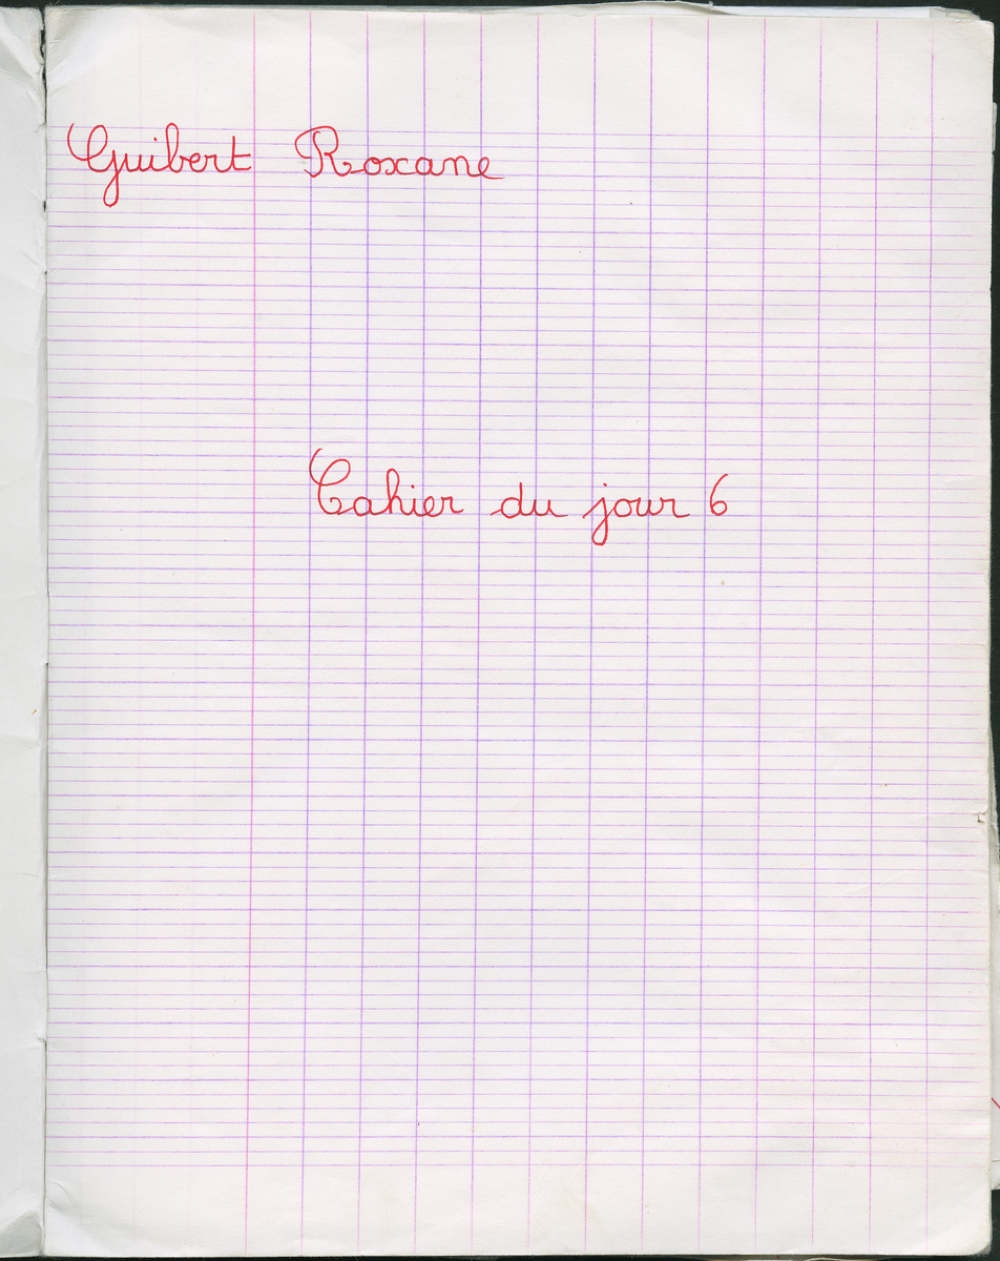 Guibert Roxane
Cahier du jour 6